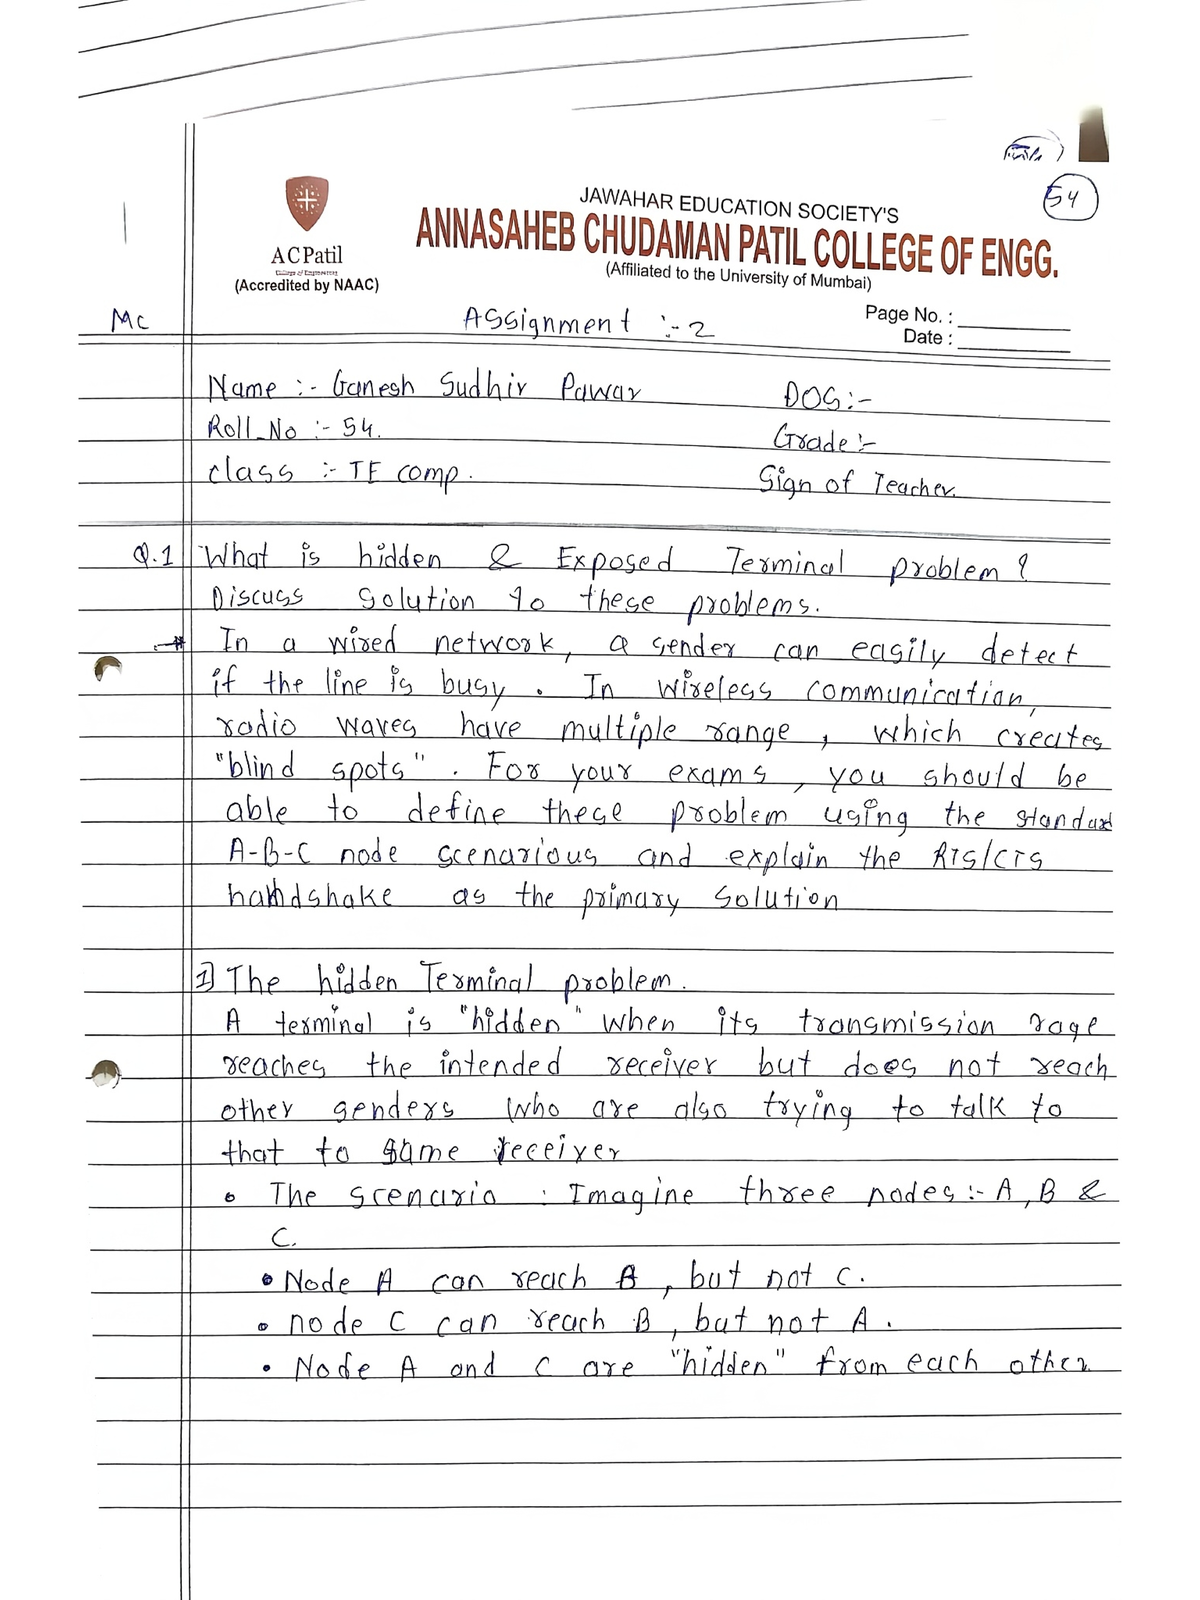 54
JAWAHAR EDUCATION SOCIETY'S
ANNASAHEB CHUDAMAN PATIL COLLEGE OF ENGG.
(Affiliated to the University of Mumbai)
A C Patil
College of Engineering
(Accredited by NAAC)
Page No. :
Date :
Mc
Assignment :- 2
Name :- Ganesh Sudhir Pawar
DOS:-
Roll_No :- 54.
Grade:-
class :- TE comp.
Sign of Teacher.
Q.1 What is hidden & Exposed Terminal problem ?
Discuss Solution to these problems.
In a wired network, a sender can easily detect
if the line is busy. In wireless communication,
radio waves have multiple range, which creates
"blind spots". For your exams, you should be
able to define these problem using the standard
A-B-C node scenarious and explain the RTS/CTS
hahdshake as the primary Solution
1] The hidden Terminal problem.
A terminal is "hidden" when its transmission rage
reaches the intended receiver but does not reach
other genders who are also trying to talk to
that to same receiver
• The scenario : Imagine three nodes:- A, B &
C.
• Node A can reach B, but not C.
• node C can reach B, but not A.
• Node A and C are "hidden" from each other